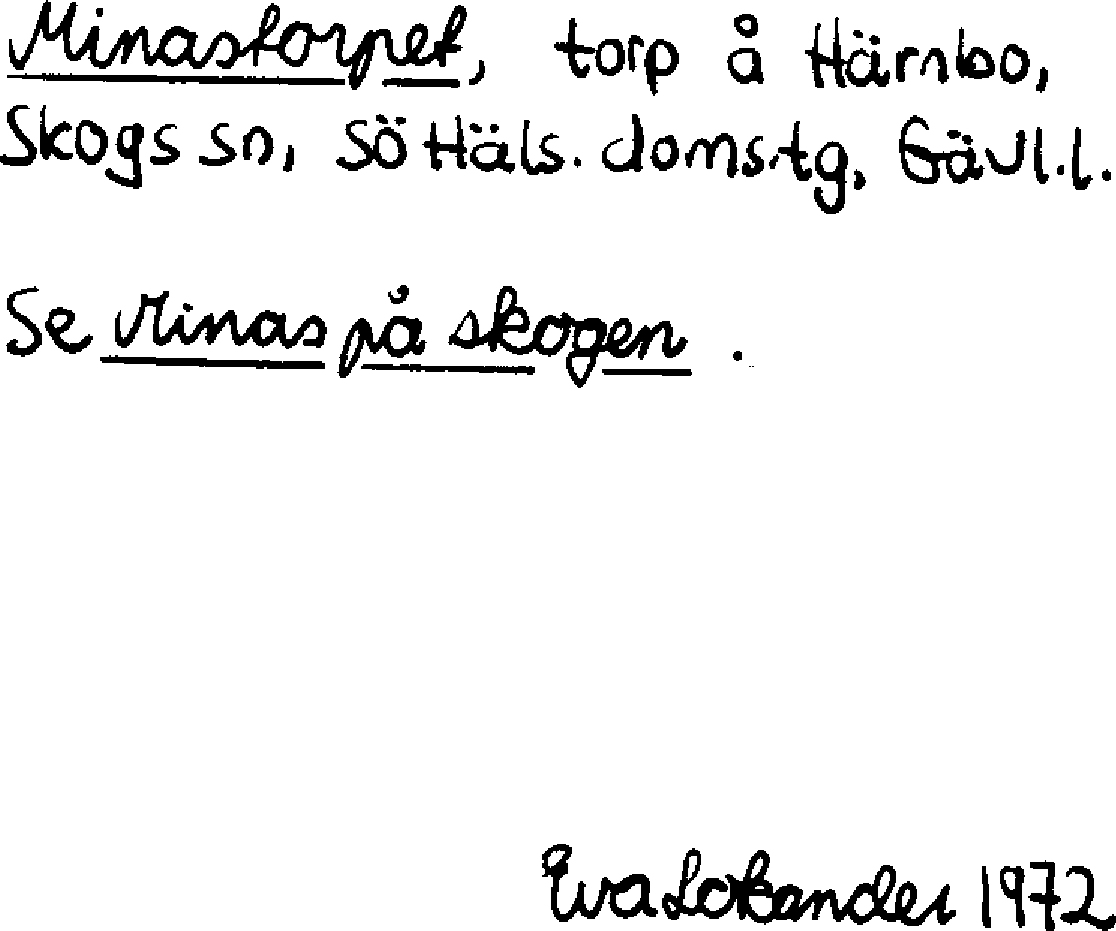 Minastorpet, torp å Härnbo,
Skogs sn, Sö Häls. doms.tg, Gävl.l.
Se Minas på skogen .
Eva Lokander 1972